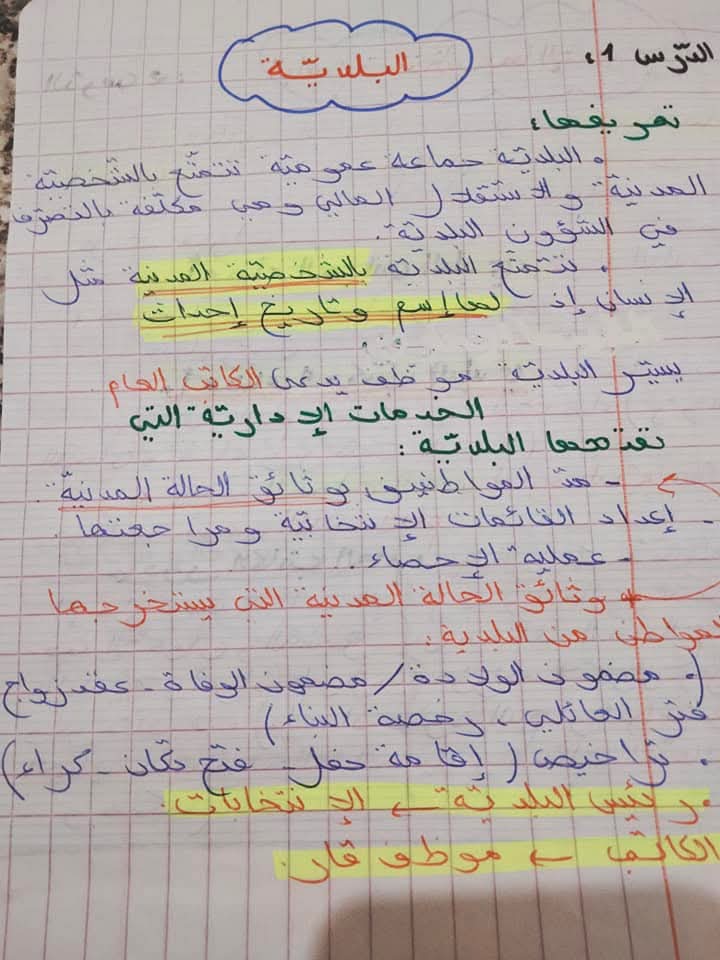 الدّرس 1:
البلديّة
تعريفها:
. البلديّة جماعة عموميّة تتمتّع بالشّخصيّة
المدنيّة والاستقلال المالي وهي مكلّفة بالتّصرّف
في الشّؤون البلديّة.
. تتمتّع البلديّة بالشخصيّة المدنيّة مثل
الإنسان إذ لها إسم وتاريخ إحداث
يسيّر البلديّة موظف يدعى الكاتب العام
الخدمات الإداريّة التي
تقدّمها البلديّة:
- مدّ المواطنين بوثائق الحالة المدنيّة.
- إعداد القائمات الإنتخابية ومراجعتها.
- عمليّة الإحصاء.
وثائق الحالة المدنية التي يستخرجها
المواطن من البلدية:
(. مضمون الولادة / مضمون الوفاة - عقد زواج
دفتر العائلي، رخصة البناء)
. تراخيص (إقامة حفل - فتح دكان - كراء)
. رئيس البلديّة ← الإنتخابات.
الكاتب ← موظف قار.